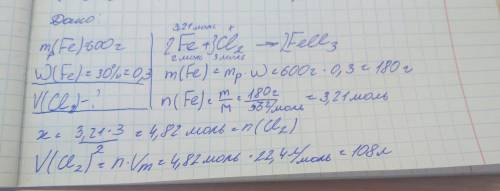 Дано:
mp(Fe)=600г
W(Fe)=30%=0,3
V(Cl2)-?
3,21моль x
2Fe+3Cl2 → 2FeCl3
2моль 3моль
m(Fe)=mp·w=600г·0,3=180г
n(Fe)=m/M=180г/56г/моль=3,21моль
x=3,21·3/2=4,82моль=n(Cl2)
V(Cl2)=n·Vm=4,82моль·22,4л/моль=108л